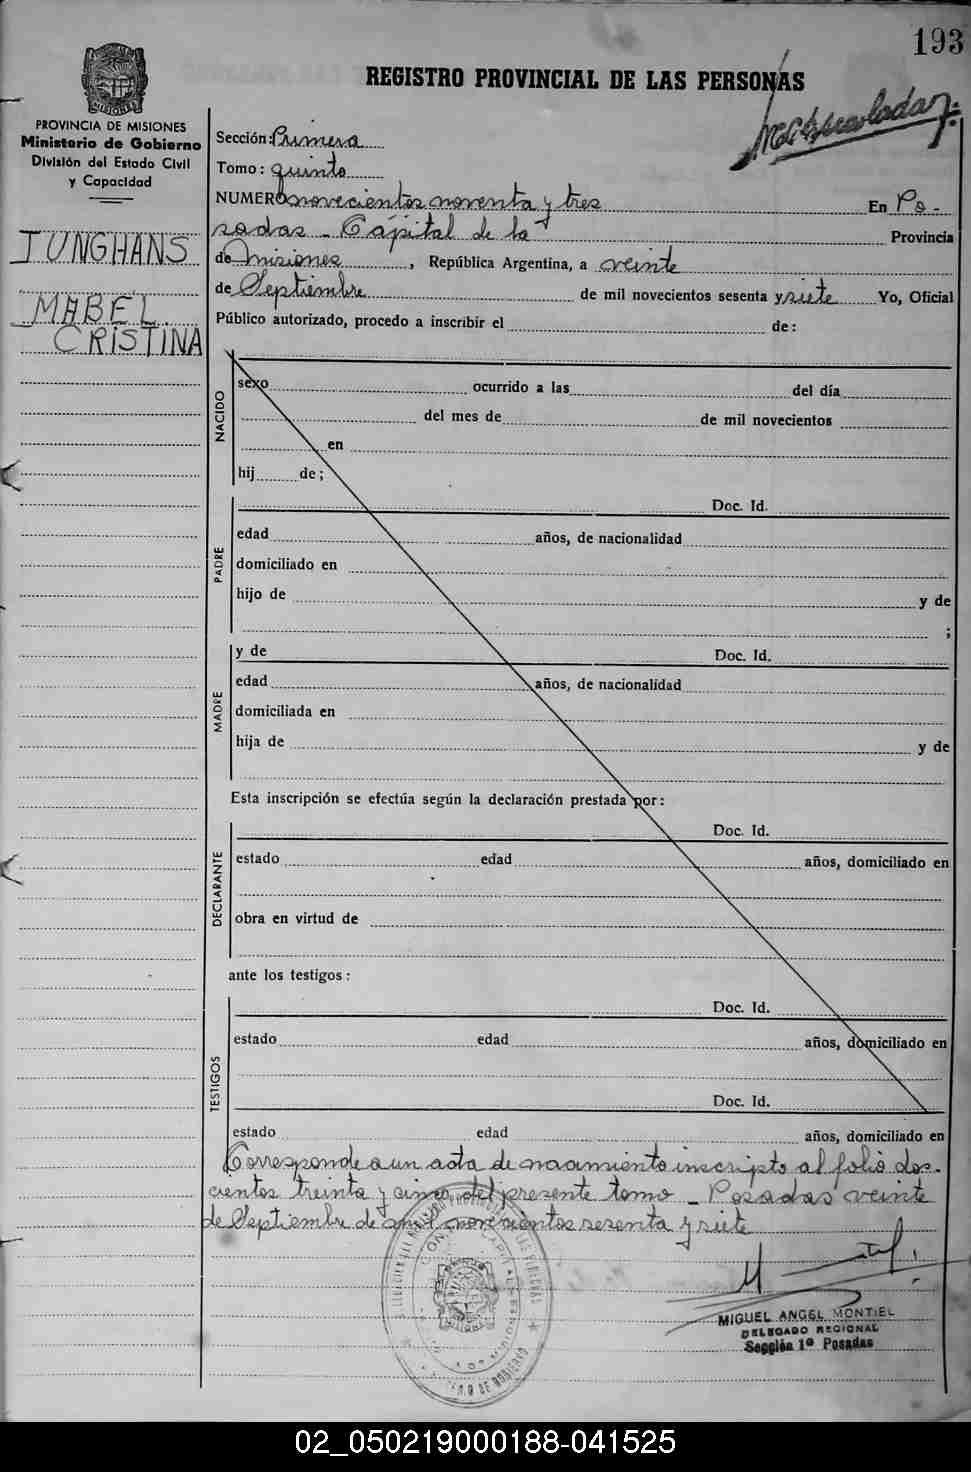 193
REGISTRO PROVINCIAL DE LAS PERSONAS
PROVINCIA DE MISIONES
Ministerio de Gobierno
División del Estado Civil
y Capacidad
JUNGHANS
MABEL
CRISTINA
Sección: Primera
Tomo: quinto
NUMERO novecientos noventa y tres En Po-
sadas - Capital de la Provincia
de Misiones, República Argentina, a veinte
de Septiembre de mil novecientos sesenta y siete Yo, Oficial
Público autorizado, procedo a inscribir el de:
NACIDO
sexo ocurrido a las del día
del mes de de mil novecientos
en
hij de;
PADRE
Doc. Id.
edad años, de nacionalidad
domiciliado en
hijo de y de
;
MADRE
y de Doc. Id.
edad años, de nacionalidad
domiciliada en
hija de y de
Esta inscripción se efectúa según la declaración prestada por:
DECLARANTE
Doc. Id.
estado edad años, domiciliado en
obra en virtud de
ante los testigos:
TESTIGOS
Doc. Id.
estado edad años, domiciliado en
Doc. Id.
estado edad años, domiciliado en
Corresponde a un acta de nacimiento inscripto al folio dos-
cientos treinta y cinco del presente tomo - Posadas veinte
de Septiembre de mil novecientos sesenta y siete
MIGUEL ANGEL MONTIEL
DELEGADO REGIONAL
Sección 1ª Posadas
02_050219000188-041525